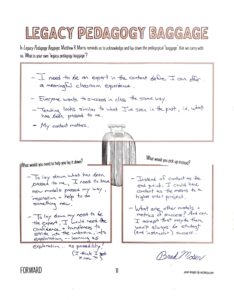 LEGACY PEDAGOGY BAGGAGE
In Legacy Pedagogy Baggage, Matthew R. Morris reminds us to acknowledge and lay down the pedagogical "baggage" that we carry with
us. What is your own legacy pedagogy baggage?
- I need to be an expert in the content before I can offer
a meaningful classroom experience.
- Everyone wants to success in class the same way.
- Teaching looks similar to what I've seen in the past, i.e., what
has been passed to me.
- My content matters.
What would you need to help you lay it down?
What would you pick up instead?
- To lay down what has been
passed to me, I need to have
new models passed my way,
inspiration + help to do
something new.
- To lay down my need to be
the expert, I would need the
confidence + humbleness to
into the unknown, into
exploration - learning as
exploration as possibility.
(I think I got
- Instead of content as the
end point, I could have
content as the means to a
higher order project.
- What are other models +
metrics of success? And can
I accept that maybe there
won't always be student
(and instructor) success.
Brad Moser
FORWARD
11